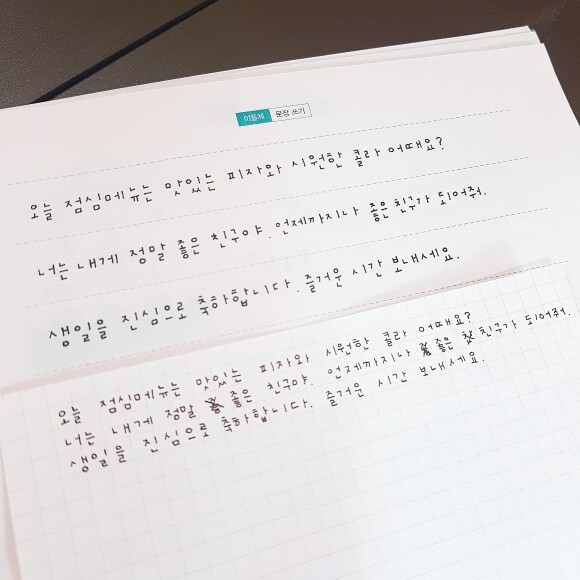 이듬체 문장 쓰기
오늘 점심메뉴는 맛있는 피자와 시원한 콜라 어때요?
너는 내게 정말 좋은 친구야. 언제까지나 좋은 친구가 되어줘.
생일을 진심으로 축하합니다. 즐거운 시간 보내세요.
오늘 점심메뉴는 맛있는 피자와 시원한 콜라 어때요?
너는 내게 정말 좋은 친구야. 언제까지나 좋은 친구가 되어줘.
생일을 진심으로 축하합니다. 즐거운 시간 보내세요.